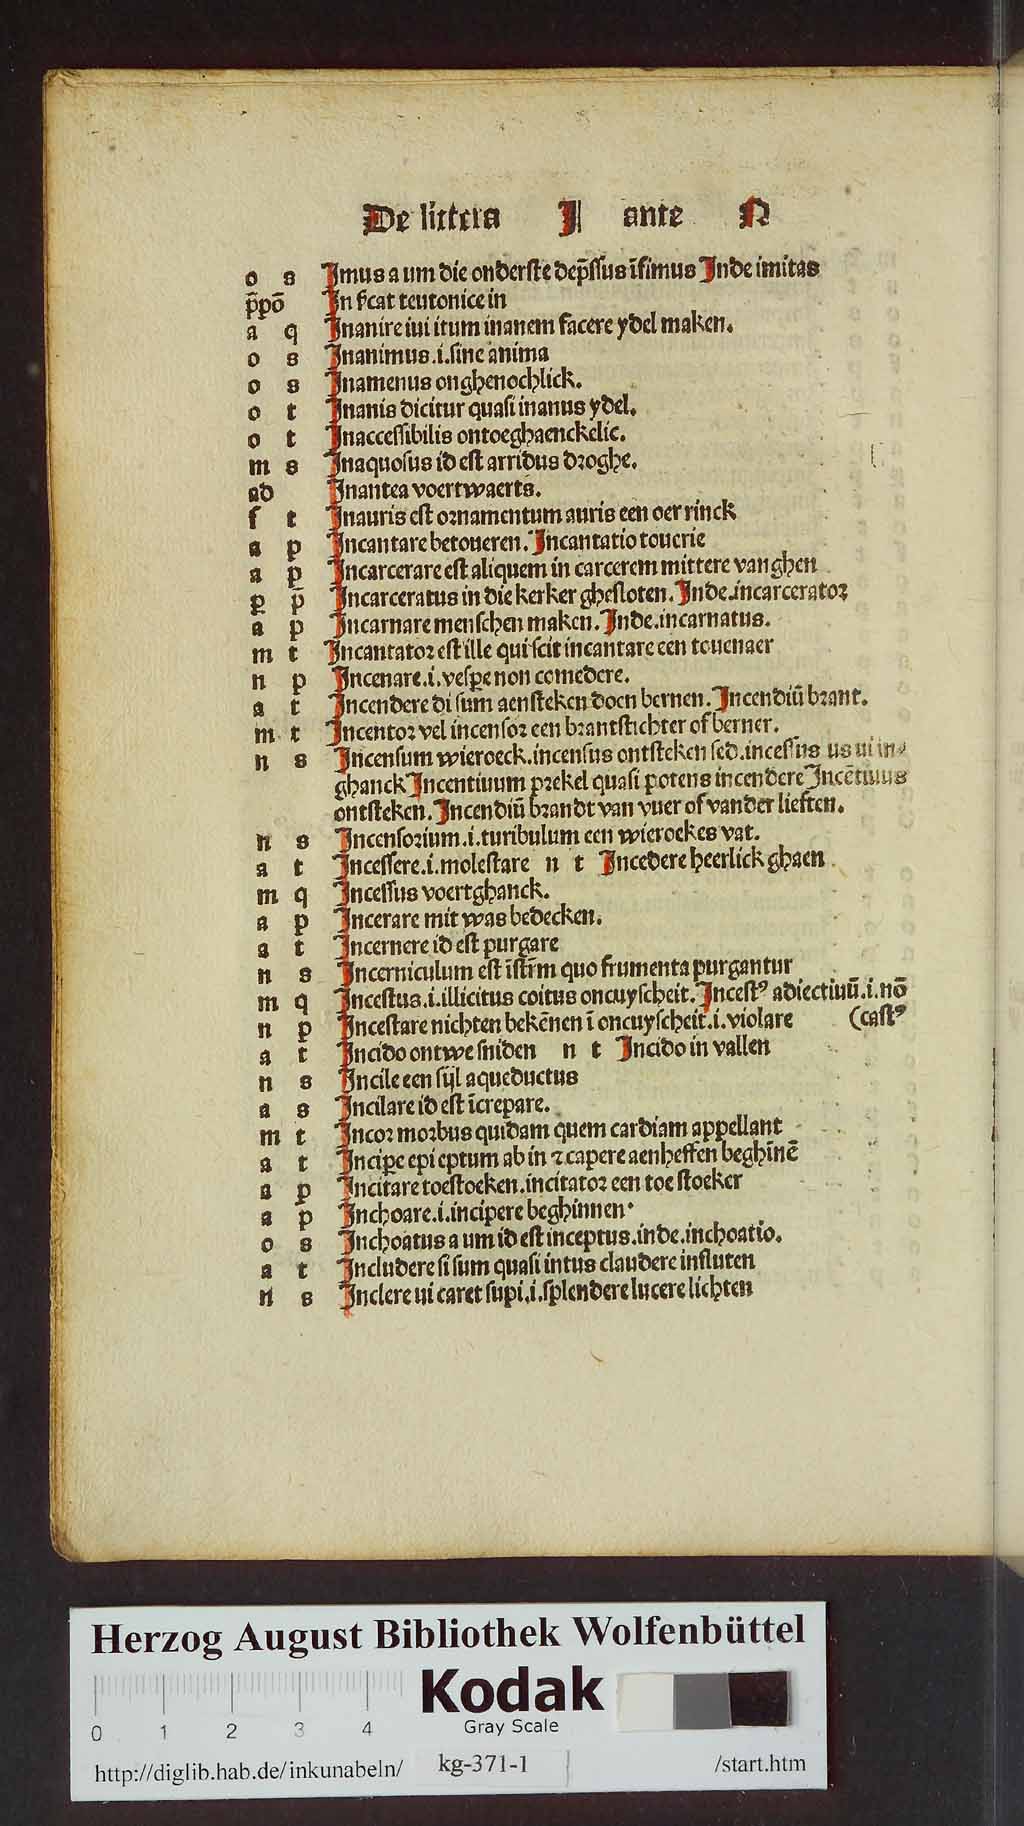 De littera I ante N
o s Imus a um die onderste dep̄ssus īfimus Inde imitas
p̄pō In ſcat teutonice in
a q Inanire iui itum inanem facere ydel maken.
o s Inanimus.i.sine anima
o s Inamenus onghenochlick.
o t Inanis dicitur quasi inanus ydel.
o t Inaccessibilis ontoeghaenckelic.
m s Inaquosus id est arridus droghe.
ad Inantea voertwaerts.
f t Inauris est ornamentum auris een oer rinck
a p Incantare betoueren. Incantatio touerie
a p Incarcerare est aliquem in carcerem mittere vanghen
p p̄ Incarceratus in die kerker ghesloten. Inde.incarcerator
a p Incarnare menschen maken. Inde.incarnatus.
m t Incantator est ille qui scit incantare een touenaer
n p Incenare.i.vespe non comedere.
a t Incendere di sum aensteken doen bernen. Incendiū brant.
m t Incentor vel incensor een brantstichter of berner.
n s Incensum wieroeck.incensus ontsteken sed.incessus us ui in⸗
ghanck Incentiuum prekel quasi potens incendere Incētiuus
ontsteken. Incendiū brandt van vuer of vander lieften.
n s Incensorium.i.turibulum een wierockes vat.
a t Incessere.i.molestare n t Incedere heerlick ghaen
m q Incessus voertghanck.
a p Incerare mit was bedecken.
a t Incernere id est purgare
n s Incerniculum est īstr̄m quo frumenta purgantur
m q Incestus.i.illicitus coitus oncuyscheit. Incestꝰ adiectiuū.i.nō
n p Incestare nichten bekēnen ī oncuyscheit.i.violare (castꝰ
a t Incido ontwe sniden n t Incido in vallen
n s Incile een sijl aqueductus
a s Incilare id est īcrepare.
m t Incor morbus quidam quem cardiam appellant
a t Incipe epi eptum ab in ⁊ capere aenheffen beghīnē
a p Incitare toestoeken.incitator een toe stoeker
a p Inchoare.i.incipere beghinnen·
o s Inchoatus a um id est inceptus.inde.inchoatio.
a t Includere si sum quasi intus claudere insluten
n s Inclere ui caret supi.i.splendere lucere lichten
Herzog August Bibliothek Wolfenbüttel
0 1 2 3 4
Kodak
Gray Scale
http://diglib.hab.de/inkunabeln/ kg-371-1 /start.htm